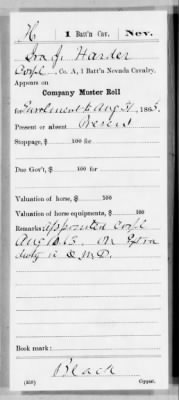 H 1 Batt'n Cav. Nev.
Ira J. Harder
Corpl, Co. A, 1 Batt'n Nevada Cavalry.
Appears on
Company Muster Roll
for Enrolment to Aug 31, 1863.
Present or absent Present
Stoppage, $ 100 for
Due Gov't, $ 100 for
Valuation of horse, $ 100
Valuation of horse equipments, $ 100
Remarks: Appointed Corpl
Aug 10/63. On
duty in
Book mark:
Black
(359) Copyist.